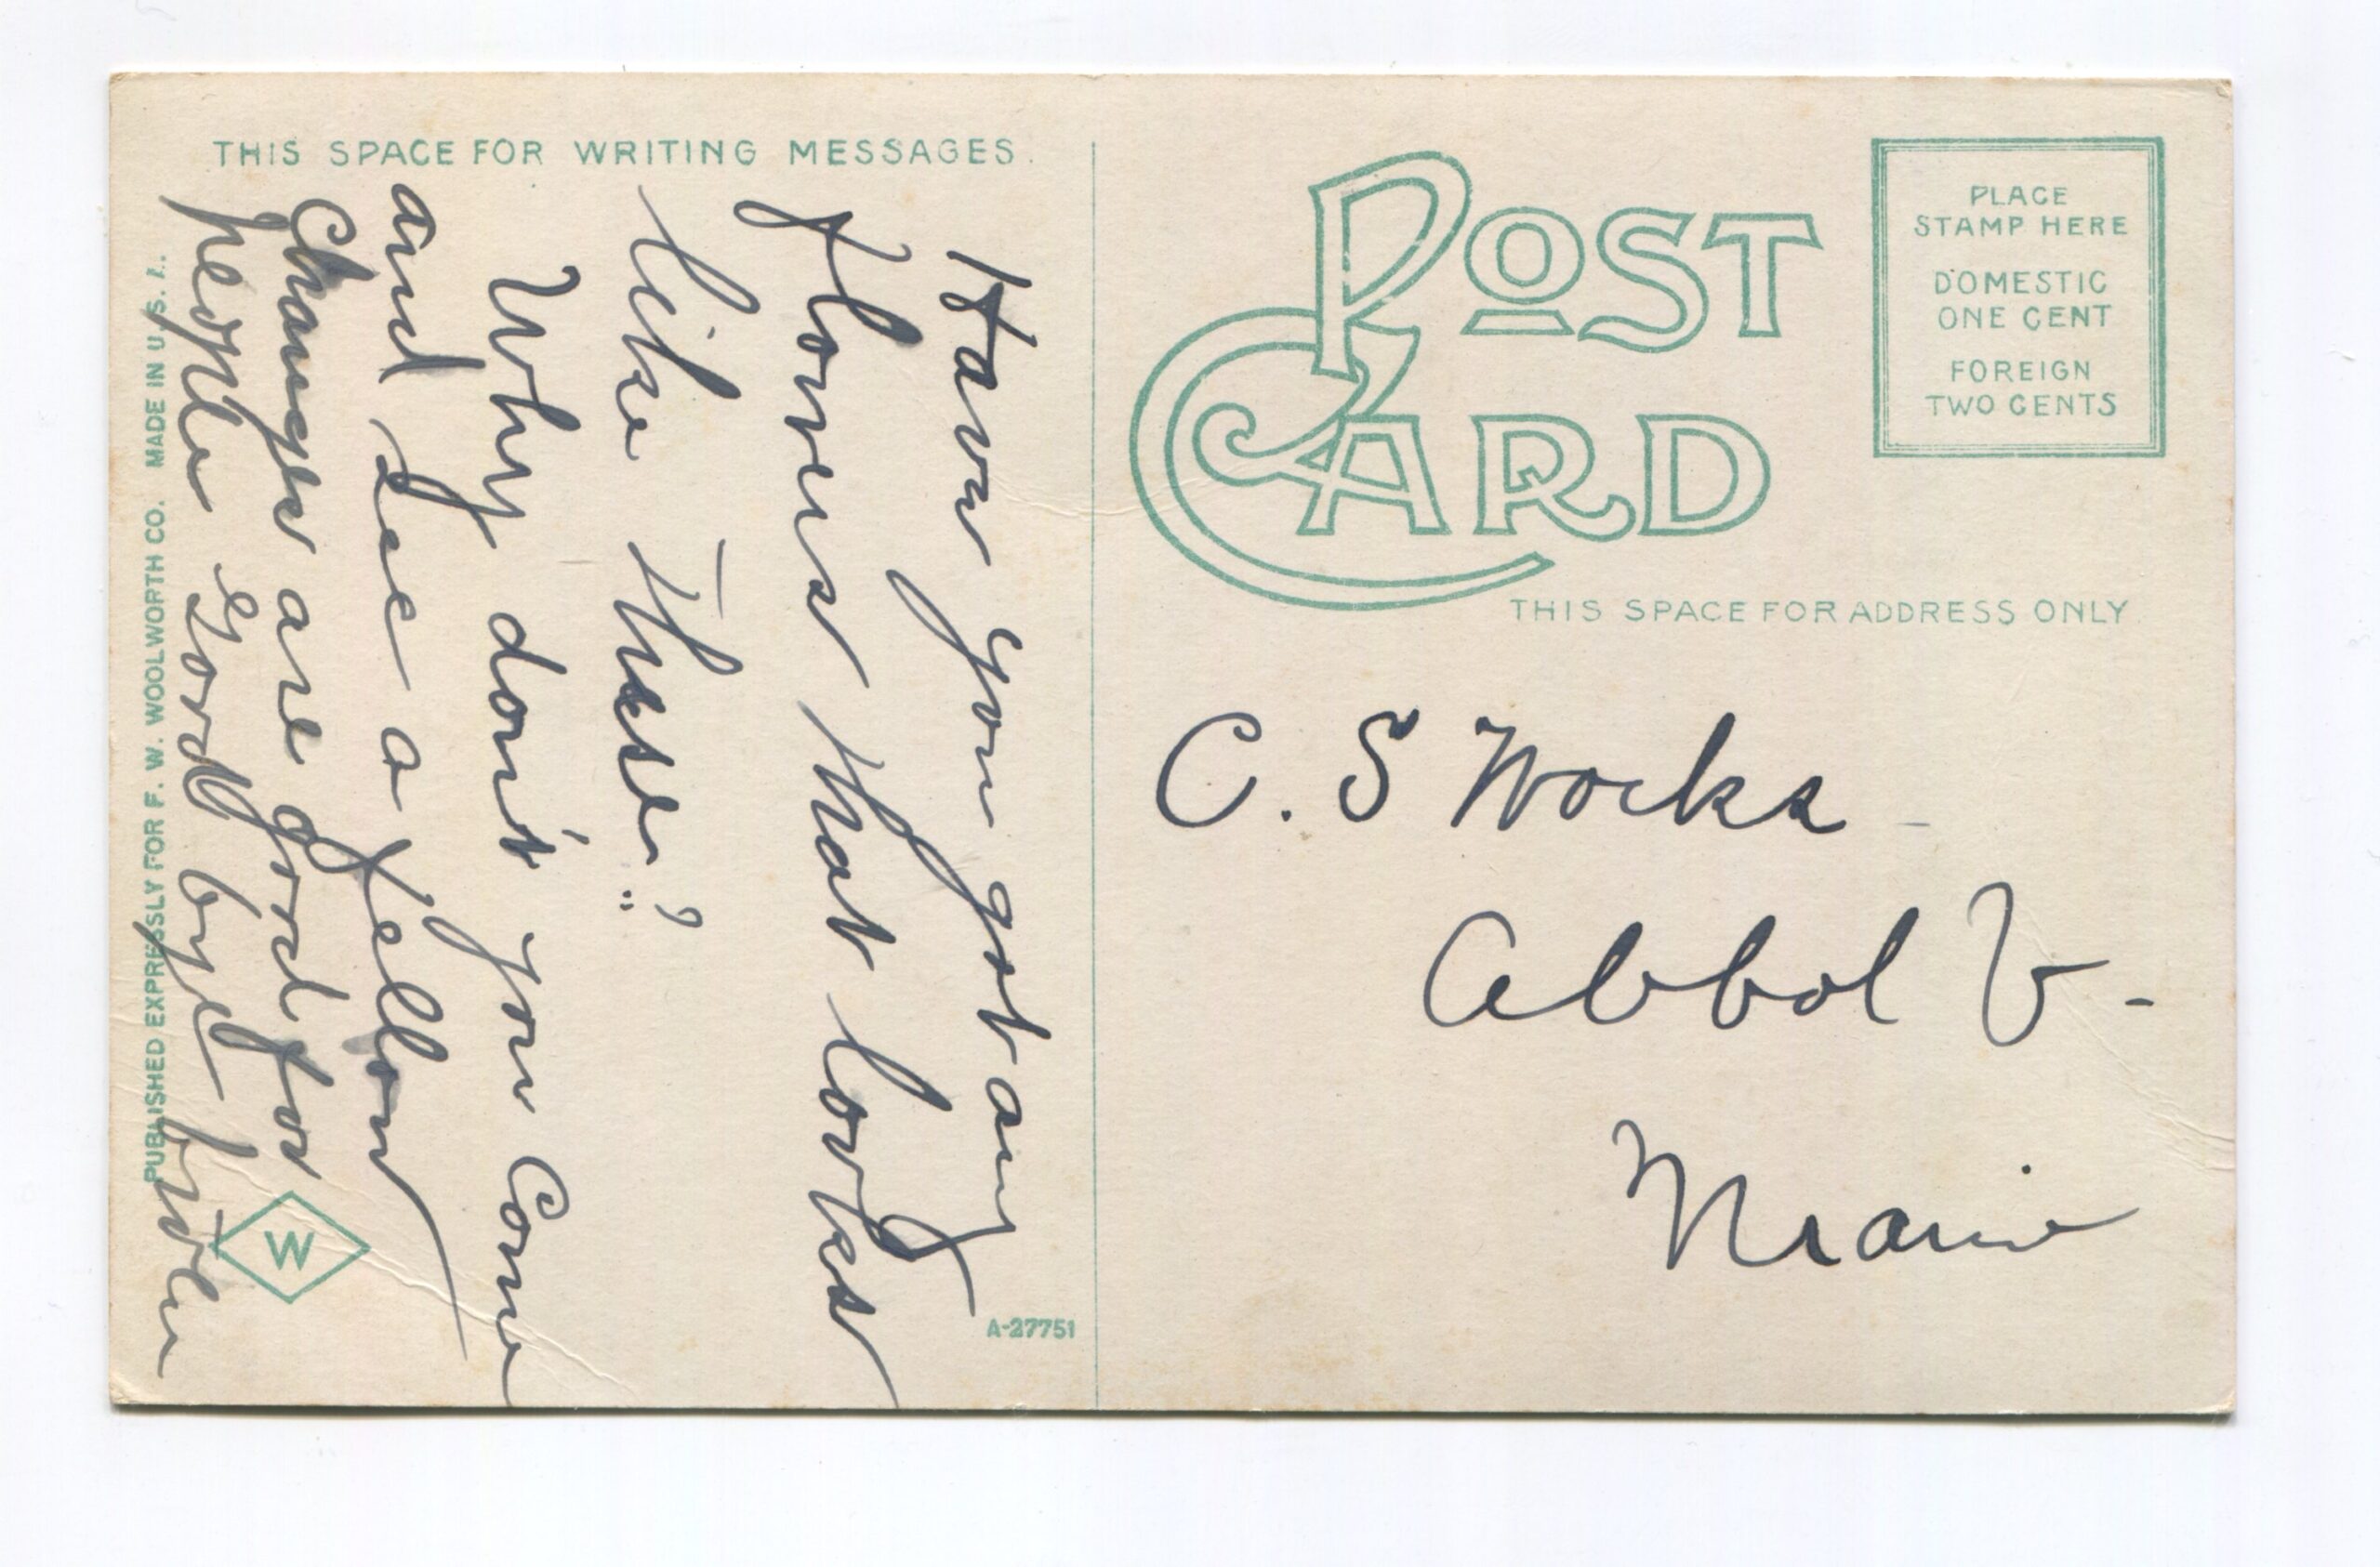 THIS SPACE FOR WRITING MESSAGES.
Have you got any
flowers that lookes
like These?
Why don't you Come
and see a fellow
Changes are good for
people Good bye
PUBLISHED EXPRESSLY FOR F. W. WOOLWORTH CO. MADE IN U. S. A.
W
A-27751
POST
CARD
PLACE
STAMP HERE
DOMESTIC
ONE CENT
FOREIGN
TWO CENTS
THIS SPACE FOR ADDRESS ONLY
C. S Works
Abbot V-
Maine